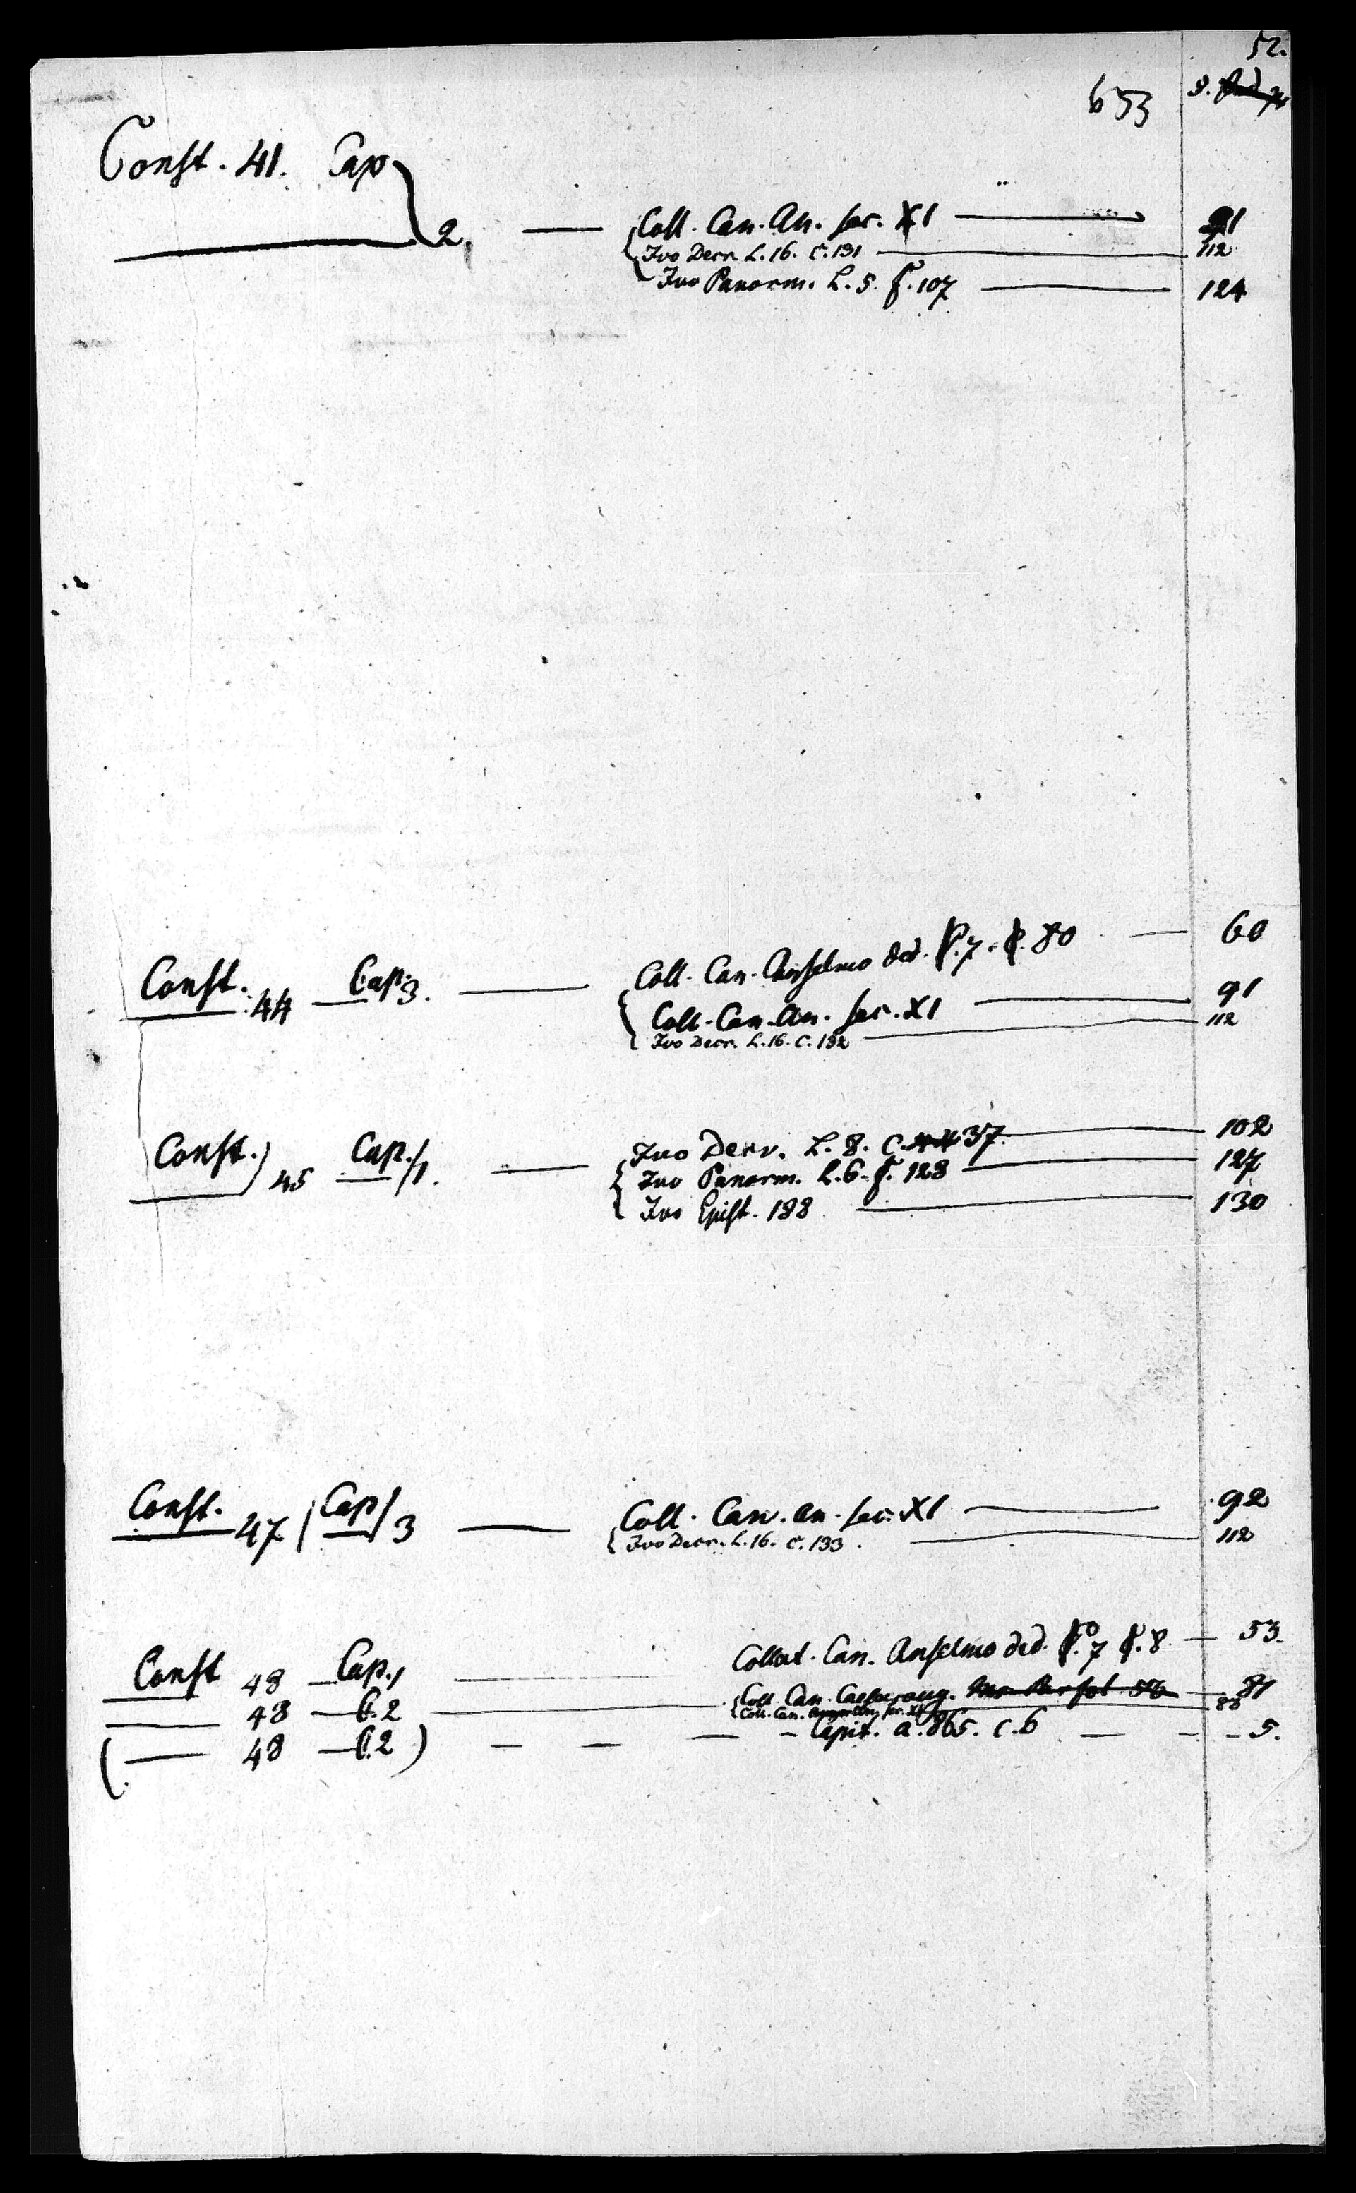 52.
653
S.
Const. 41. Cap 2. — Coll. Can. An. sec. XI — 91
Ivo Decr. L. 16. C. 131 — 112
Ivo Panorm. L. 5. C. 107 — 124
Coll. Can. Anselmo ded. P. 7. C. 80 — 60
Const. 44 Cap. 3. — Coll. Can. An. sec. XI — 91
Ivo Decr. L. 16. C. 132 — 112
Const. 45 Cap. 1. — Ivo Decr. L. 8. C. 37 — 102
Ivo Panorm. L. 6. C. 128 — 127
Ivo Epist. 188 — 130
Const. 47 Cap 3 — Coll. Can. An. sec. XI — 92
Ivo Decr. L. 16. C. 133. — 112
Const 48 — Cap. 1 — Collect. Can. Anselmo ded. P. 7 C. 8 — 53.
— 48 — C. 2 — Coll. Can. Caesaraug. — 81
Coll. Can. sec. XI — 88
( — 48 — C. 2 ) — — — Capit. a. 865. C. 6 — — 5.